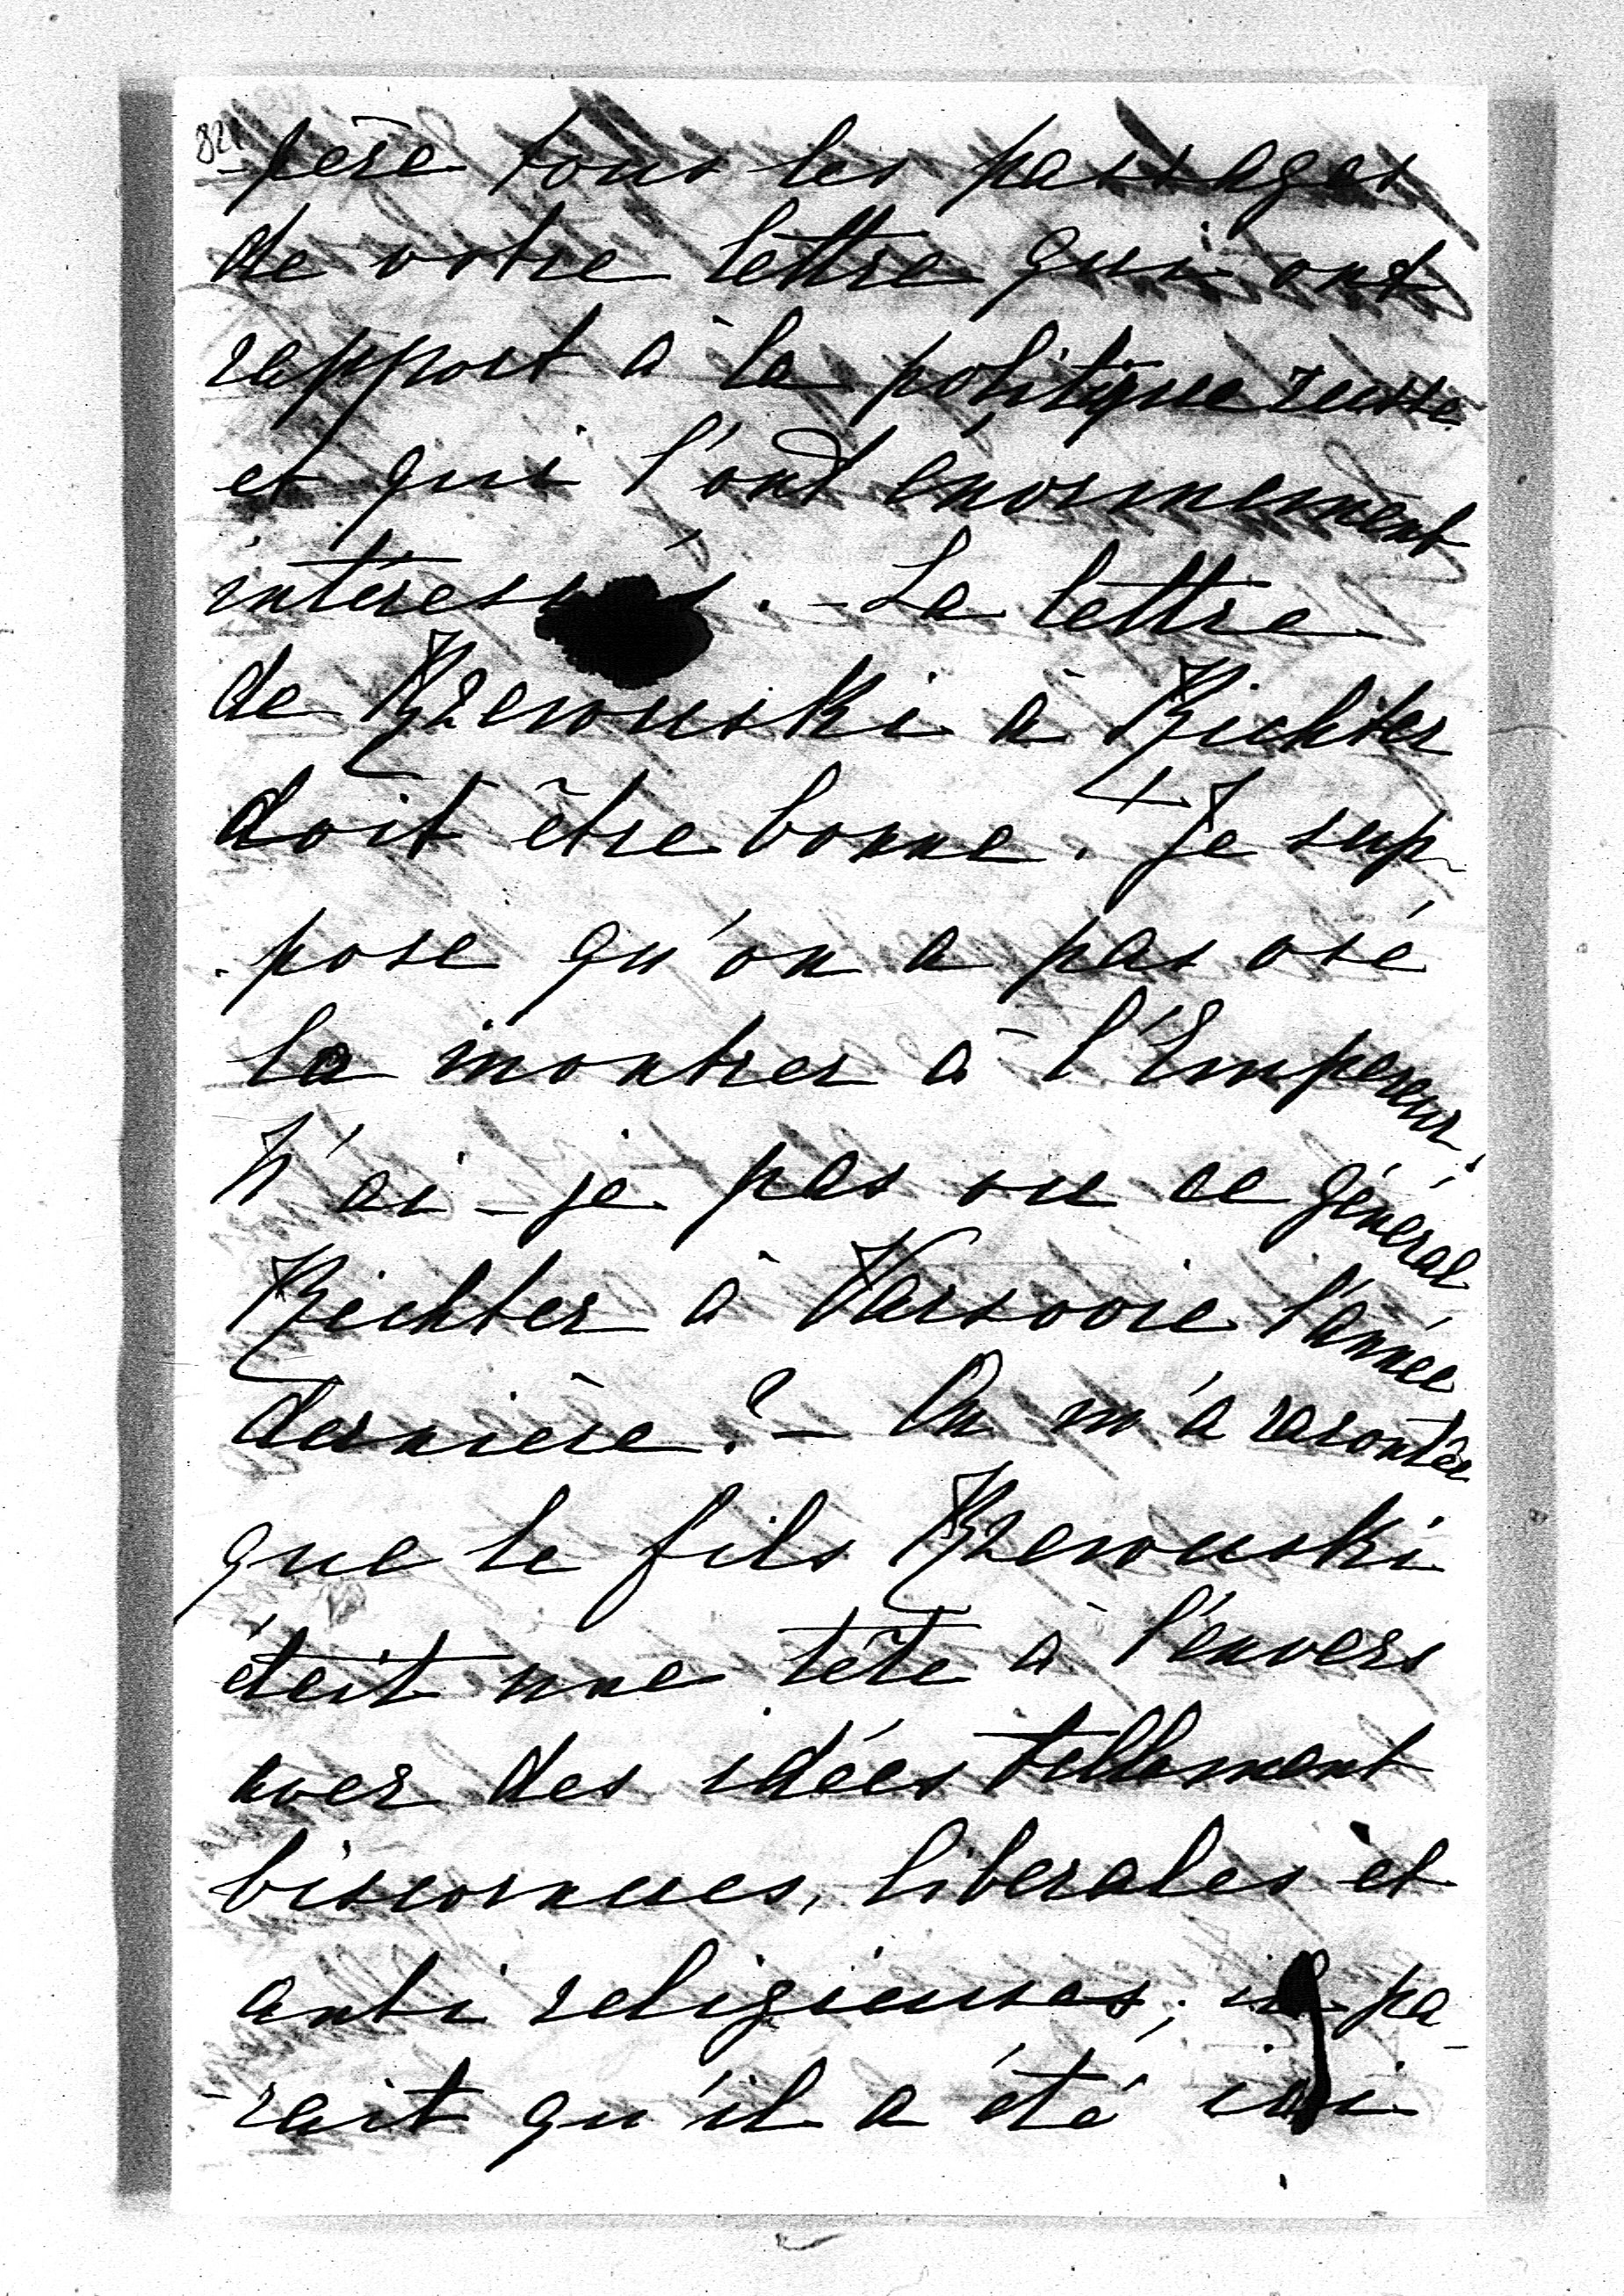 821
-père tous les passages
de votre lettre qui ont
rapport à la politique russe
et qui l'ont enormement
intéressés. - La lettre
de Rzewuski à Richter
doit être bonne. Je sup-
-pose qu'on a pas osé
la montrer à l'Empereur.
N'ai-je pas vu ce général
Richter à Varsovie l'année
dernière? - On m'a racontée
que le fils Rzewuski
était une tête à l'envers
avec des idées tellement
biscornues, liberales et
anti religieuses; il pa-
-rait qu'il a été ici